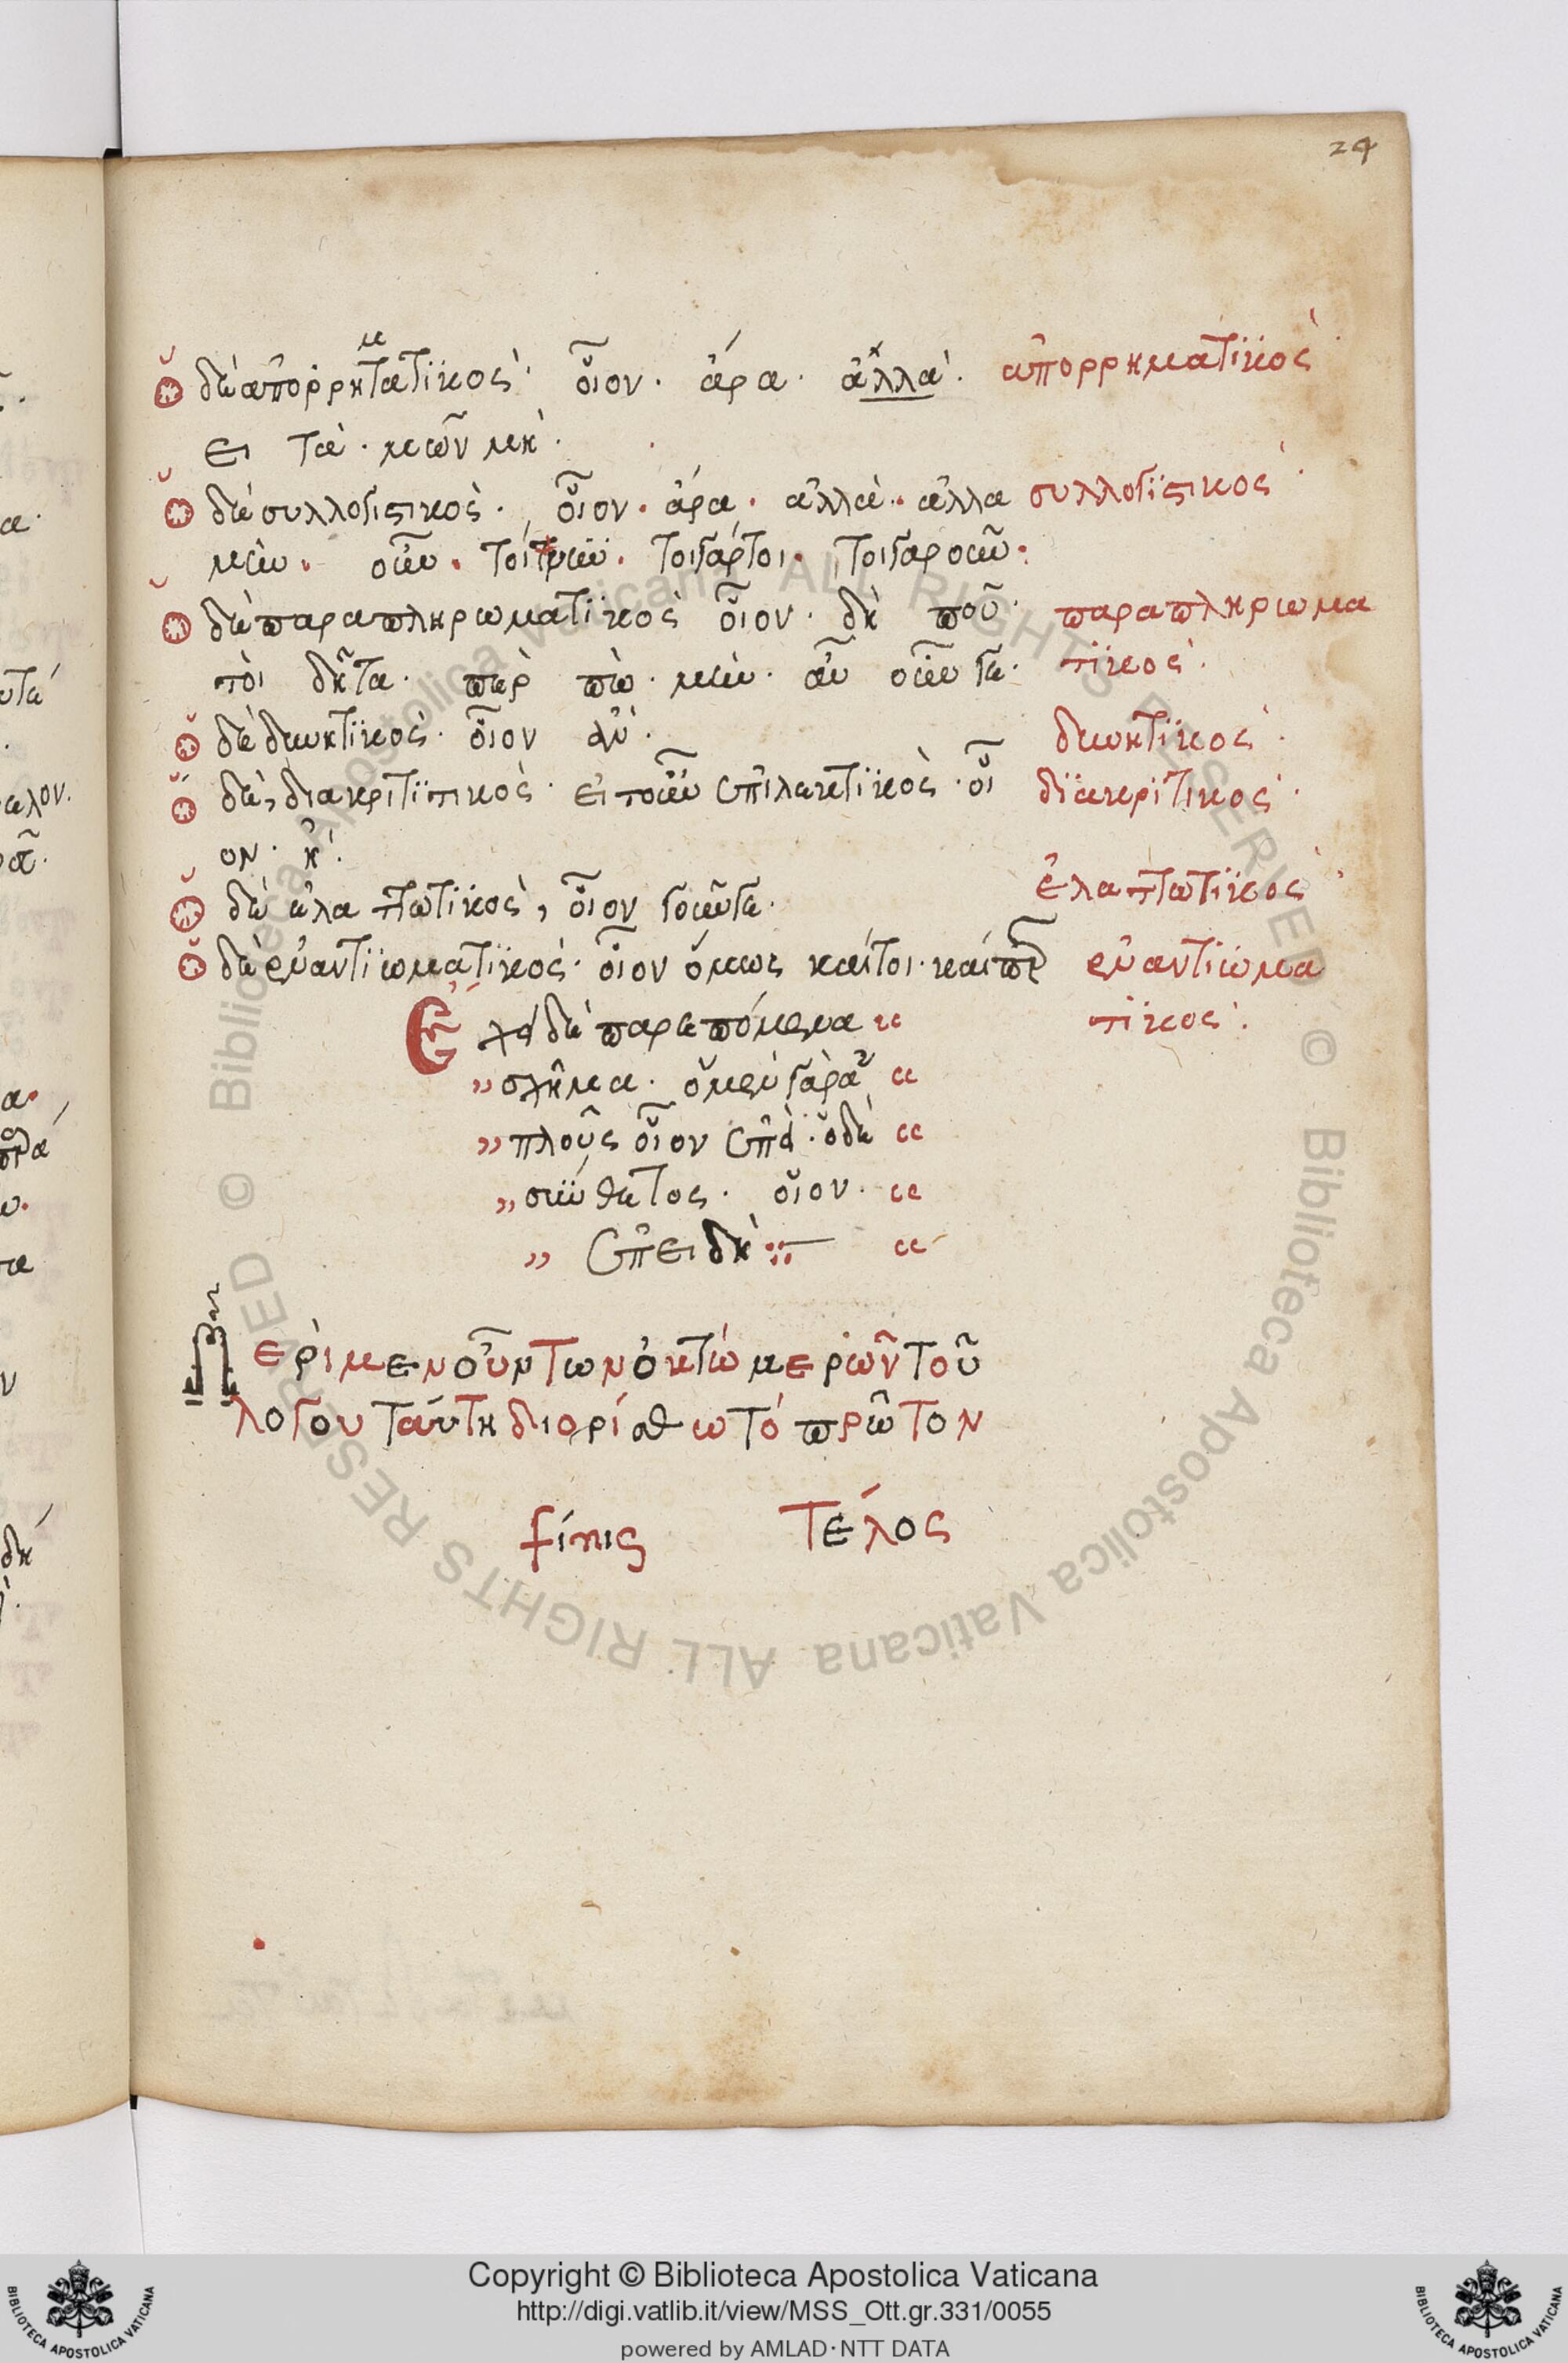 24
ὁ δὲ ἀπορρητατϊκος· οἷον· ἄρα· ἀλλὰ· ἀπορρηματϊκος
μ
ει τὲ· μῶν μὴ·
ὁ δὲ συλλογιστικὸς· οἷον· ἄρα· ἀλλὰ· ἀλλα συλλογϊστικος
μὲν· οὖν· τοιγαρτοι· τοιγαροῦν·
ὁ δὲ παραπληρωματϊκὸς οἷον· δὴ ποῦ· παραπληρωμα
τὸι δῆτα· περ πὼ· μὲν· αὖ οὖν γε· τϊκος·
ὁ δὲ δεικτϊκος· οἷον αὐ· δεικτϊκος·
ὁ δὲ διακριτϊτικος· εἰτοῦν ἐπιλεκτϊκὸς· οἷ διακριτικος·
ον· ἢ·
ὁ δὲ ἐλαττωτϊκὸς, οἷον γοῦν γε· ἐλαττωτϊκος
ὁ δὲ ἐναντϊωματϊκος· οἷον ὅμως καίτοι· καίπερ ἐναντϊωμα
τϊκος·
Ἓν χει δὲ παρεπόμενα
σχῆμα· ὁ μὲν γὰρ ἁ
πλοῦς οἷον ἐπεὶ· ὁ δὲ
σύνθετος· οἷον·
ἐπειδὴ
Περὶ μεν οὖν των ὀκτὼ μερῶν τοῦ
λογου ταύτη διορίσθω τὸ πρῶτον
finis Τέλος
Copyright © Biblioteca Apostolica Vaticana
http://digi.vatlib.it/view/MSS_Ott.gr.331/0055
powered by AMLAD·NTT DATA
BIBLIOTECA APOSTOLICA VATICANA
BIBLIOTECA APOSTOLICA VATICANA
© Biblioteca Apostolica Vaticana ALL RIGHTS RESERVED © Biblioteca Apostolica Vaticana ALL RIGHTS RESERVED